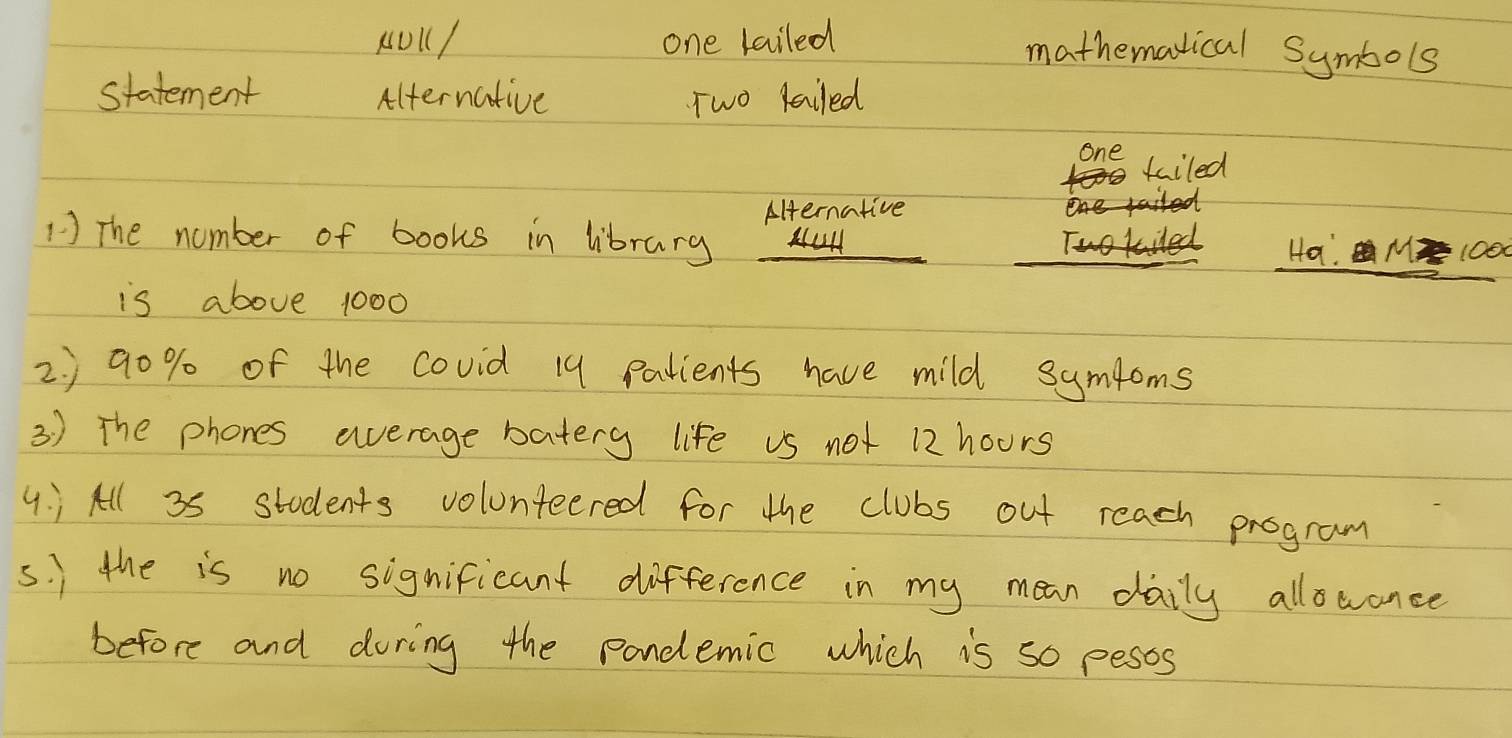 Null/ one tailed mathematical Symbols
Statement Alternative Two tailed
one
too tailed
Alternative One tailed
1.) The number of books in library Null Two tailed Ha: M 1000
is above 1000
2.) 90% of the covid 19 patients have mild symtoms
3.) The phones average batery life is not 12 hours
4.) All 35 students volunteered for the clubs out reach program
5.) the is no significant difference in my mean daily allowance
before and during the pandemic which is 50 pesos